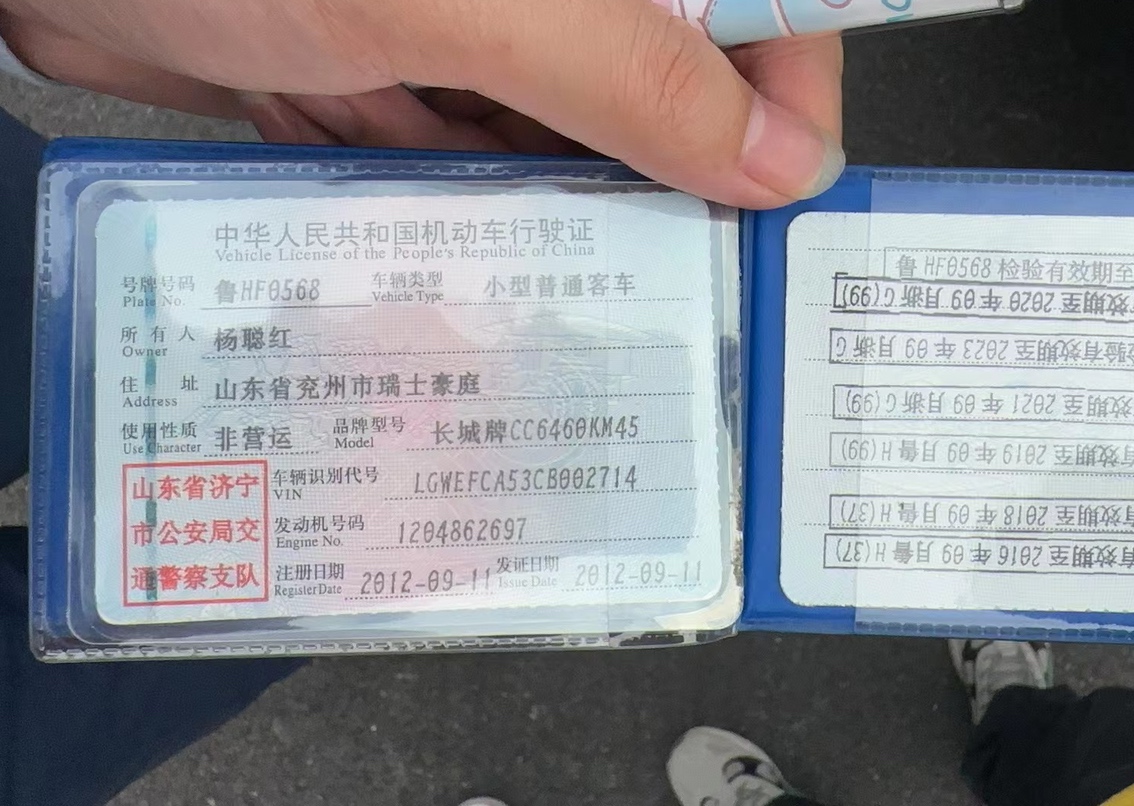 中华人民共和国机动车行驶证
Vehicle License of the People's Republic of China
号牌号码 鲁HF0568 车辆类型 小型普通客车
Plate No. Vehicle Type
所有人 杨聪红
Owner
住址 山东省兖州市瑞士豪庭
Address
使用性质 非营运 品牌型号 长城牌CC6460KM45
Use Character Model
车辆识别代号 LGWEFCA53CB002714
VIN
发动机号码 1204862697
Engine No.
注册日期 2012-09-11 发证日期 2012-09-11
Register Date Issue Date
山东省济宁
市公安局交
通警察支队
鲁HF0568检验有效期至
效期至2020年09月浙G(99)
验有效期至2023年09月浙G
有效期至2021年09月浙G(99)
有效期至2019年09月鲁H(99)
有效期至2018年09月鲁H(37)
有效期至2016年09月鲁H(37)